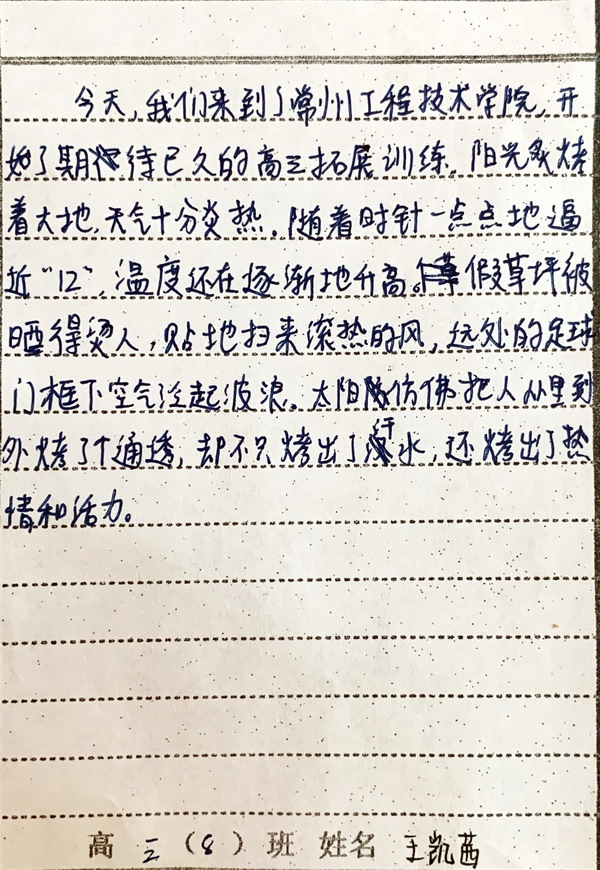 今天，我们来到了常州工程技术学院，开
始了期待已久的高三拓展训练。阳光炙烤
着大地，天气十分炎热。随着时针一点点地逼
近“12”，温度还在逐渐地升高。假草坪被
晒得烫人，贴地扫来滚热的风，远处的足球
门框下空气泛起波浪。太阳仿佛把人从里到
外烤了个通透，却不只烤出了汗水，还烤出了热
情和活力。
高三（8）班 姓名 王凯茜